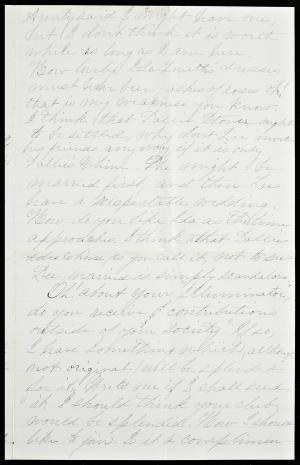 Aunty said I might have one,
but I don't think it is worth
while as long as I am here.
How lovely Ida Smith's dresses
must have been, ashes of roses oh!
that is my weakness you know.
I think that Sallie's
to be settled, why don't
his friends any way if it is only
Sallie's whim. She might be
married first and then
have a respectable wedding.
How do you like Ida as the time
approaches. I think that Sallie's
as you call it, not to see
married is simply scandalous.
Oh! about your "Illuminator,"
do you receive contributions
outside of your Society. If so,
I have something which, although
not original, will be splendid
for it, write me if I shall send
it. I should think your club
would be splendid. How I should
like to join. Is it a complimen-